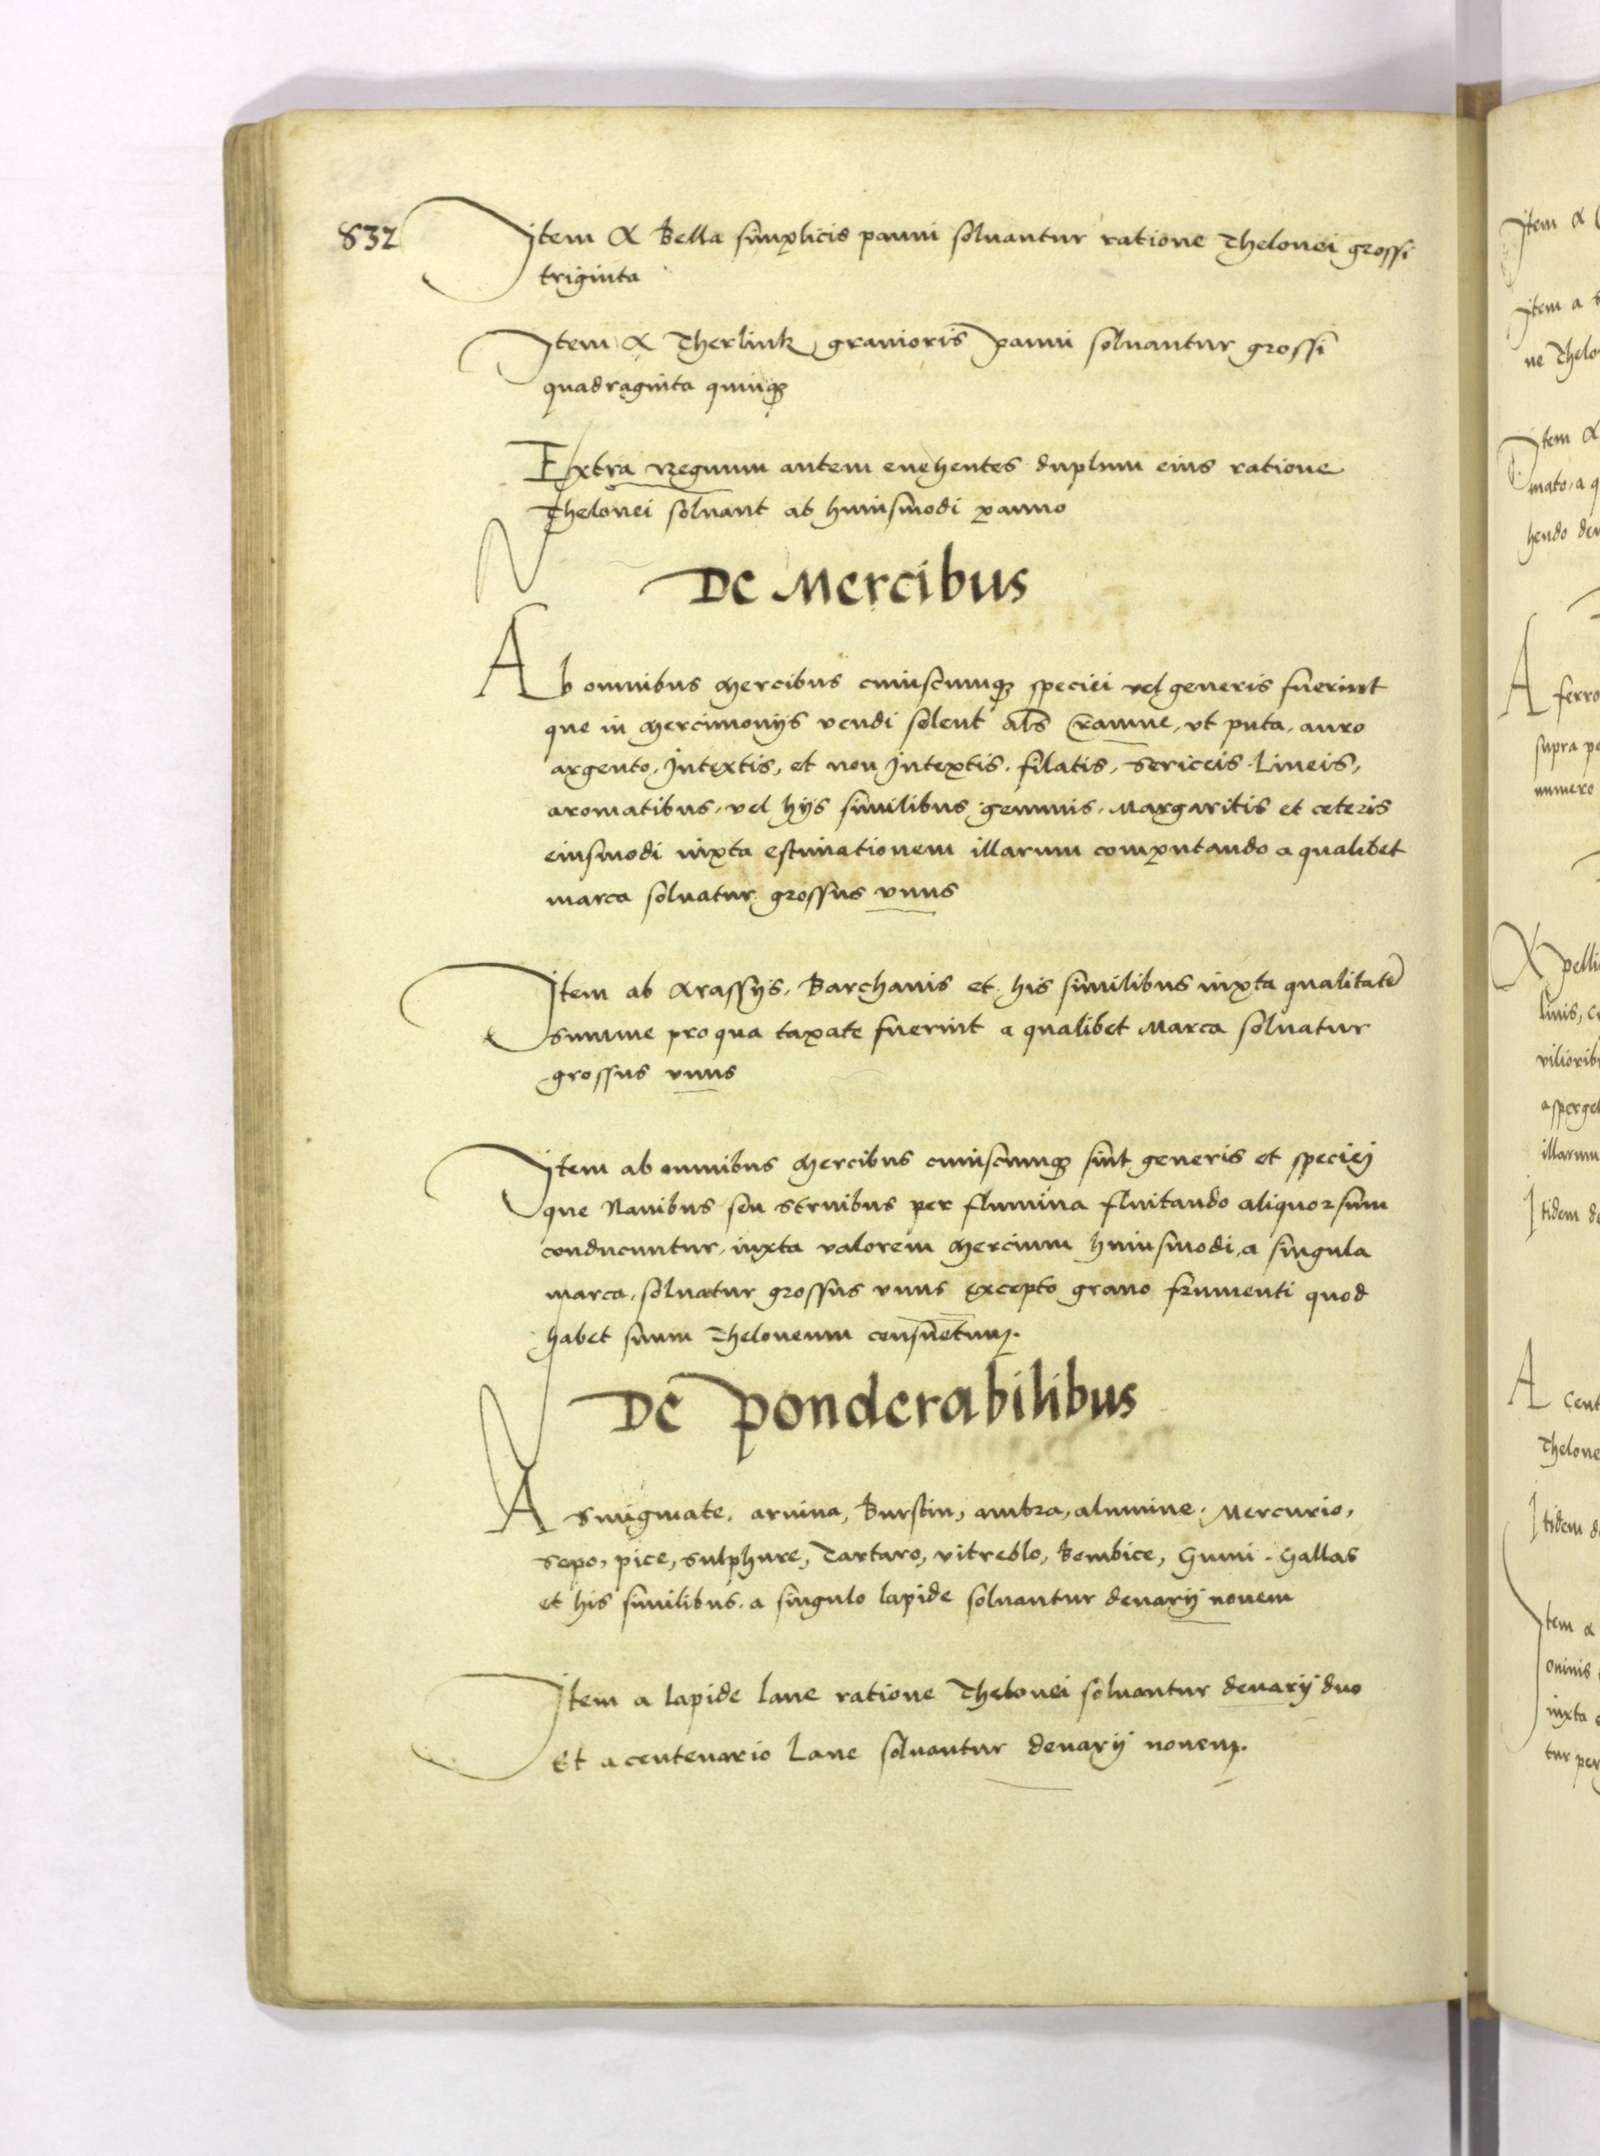 832
Item A Bella simplicis panni soluantur ratione Thelonei grossi
triginta
Item A Therlink grauioris panni soluantur grossi
quadraginta quinqꝫ
Extra Regnum autem euehentes duplum eius ratione
Thelonei soluant ab huiusmodi panno
De Mercibus
Ab omnibus Mercibus cuiuscumqꝫ speciei vel generis fuerint
que in Mercimonijs vendi solent vt puta, auro
argento, Intextis, et non Intextis, filatis, sericeis Lineis,
aromatibus, vel hijs similibus gemmis, Margaritis et ceteris
eiusmodi iuxta estimationem illarum computando a qualibet
marca soluatur grossus vnus
Item ab Arassijs, Barchanis et his similibus iuxta qualitatē
summe pro qua taxate fuerint a qualibet Marca soluatur
grossus vnus
Item ab omnibus Mercibus cuiuscumqꝫ sint generis et speciei
que Nauibus seu struibus per flumina fluitando aliquorsum
conducuntur, iuxta valorem Mercium huiusmodi, a singula
marca, soluatur grossus vnus excepto grano frumenti quod
habet suum Theloneum consuetum.
De ponderabilibus
A smigmate, aruina, Burstin, ambra, alumine, Mercurio,
sepo, pice, sulphure, Tartaro, vitreolo, Bombice, Gumi, Gallas
et his similibus, a singulo lapide soluantur denarij nouem
Item a lapide lane ratione Thelonei soluantur denarij duo
Et a centenario Lane soluantur denarij nouem.
Item A
Item a
ne Thelo
Item A
mato, a q
hendo den
A ferro
supra po
numero
pelli
linis, c
vilioribu
asperge
illarum
Itidem de
A Cent
Thelone
Itidem d
Item a
ominis
iuxta
tur per